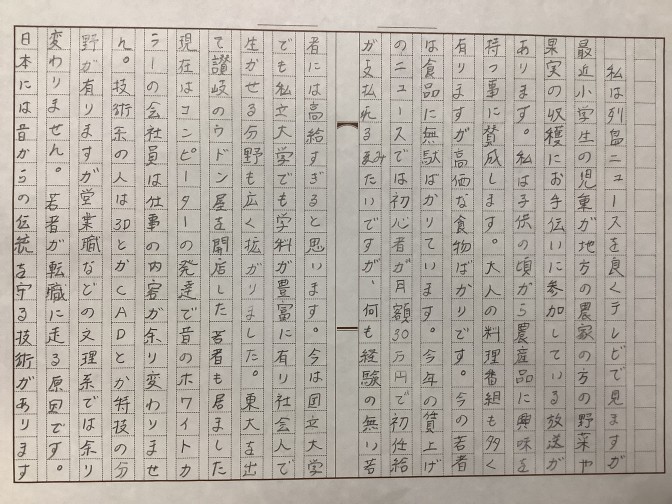 私は列島ニュースを良くテレビで見ますが
最近小学生の児童が地方の農家の方の野菜や
果実の収穫にお手伝いに参加している放送が
あります。私は子供の頃から農産品に興味を
持つ事に賛成します。大人の料理番組も多く
有りますが高価な食物ばかりです。今の若者
は食品に無駄ばかりています。今年の賃上げ
のニュースでは初心者が月額30万円で初任給
が支払れるみたいですが、何も経験の無い若
者には高給すぎると思います。今は国立大学
でも私立大学でも学科が豊富に有り社会人で
生かせる分野も広く拡がりました。東大を出
て讃岐のウドン屋を開店した若者も居ました
現在はコンピーターの発達で昔のホワイトカ
ラーの会社員は仕事の内容が余り変わりませ
ん。技術系の人は3DとかCADとか特技の分
野が有りますが営業職などの文理系では余り
変わりません。若者が転職に走る原因です。
日本には昔からの伝統を守る技術があります